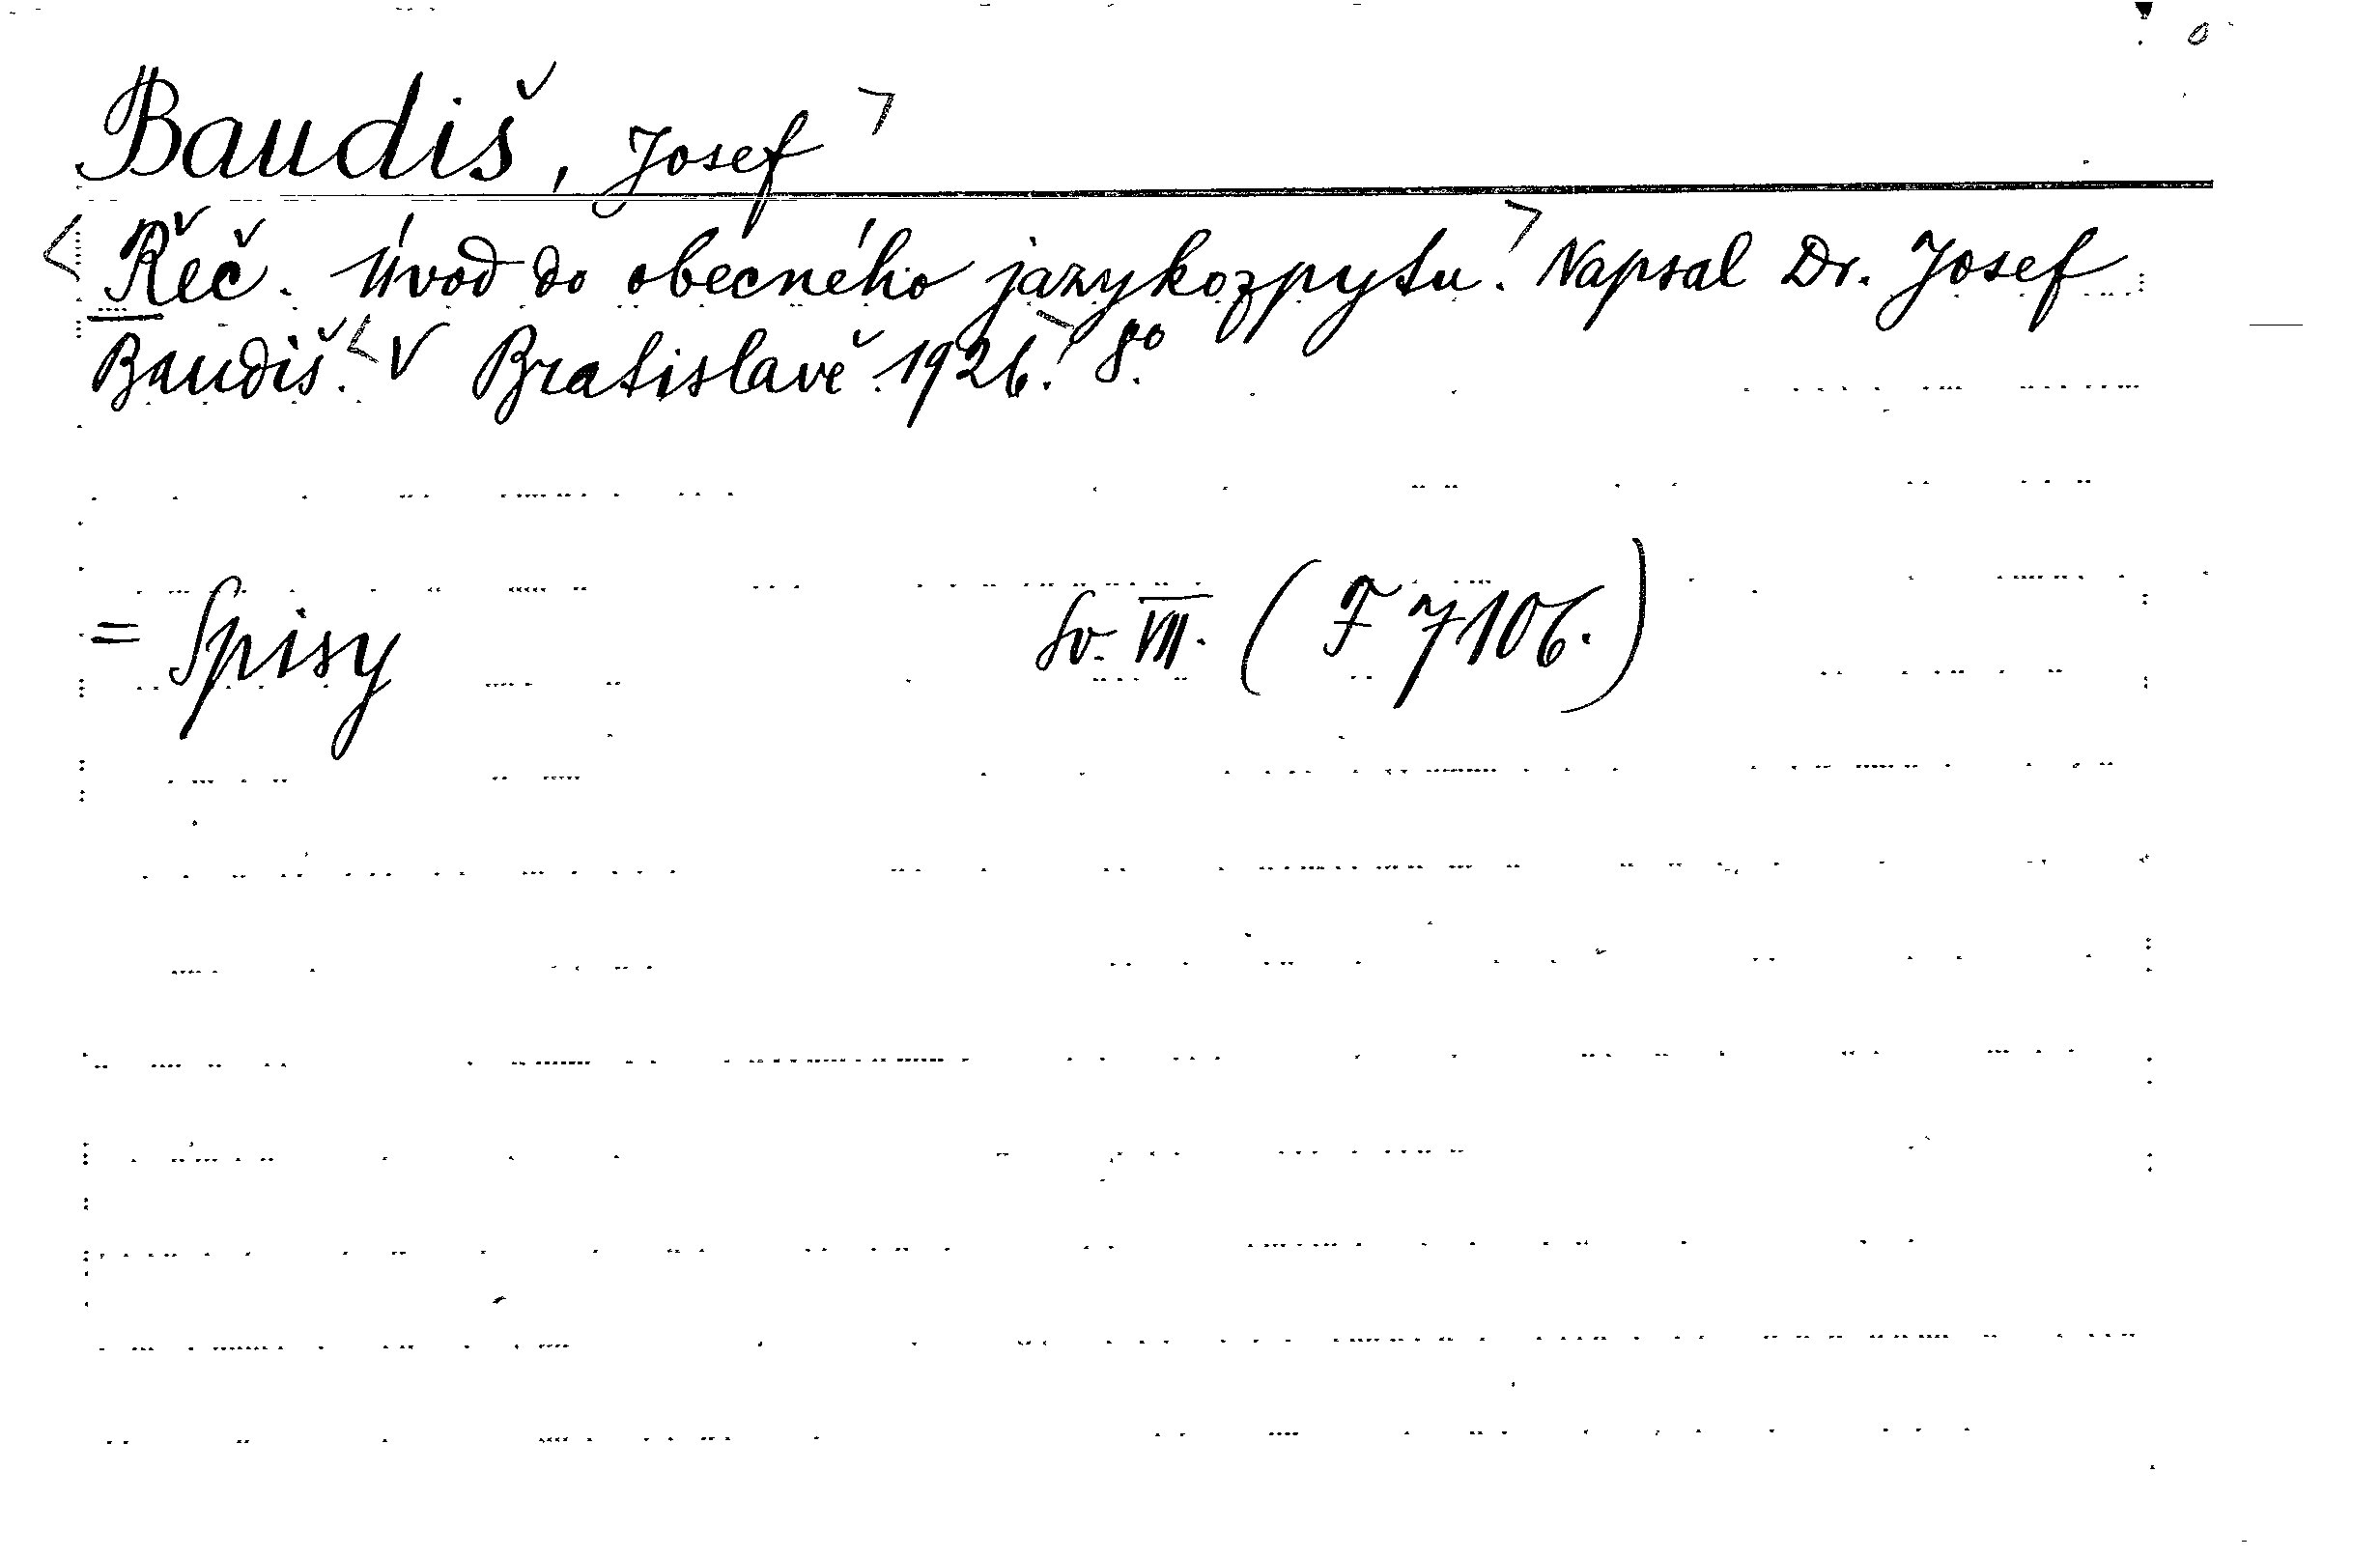 Baudiš, Josef
Řeč. Úvod do obecného jazykozpytu. Napsal Dr. Josef
Baudiš. V Bratislavě 1926. 8º.
= Spisy Sv. VII. (F 7106.)